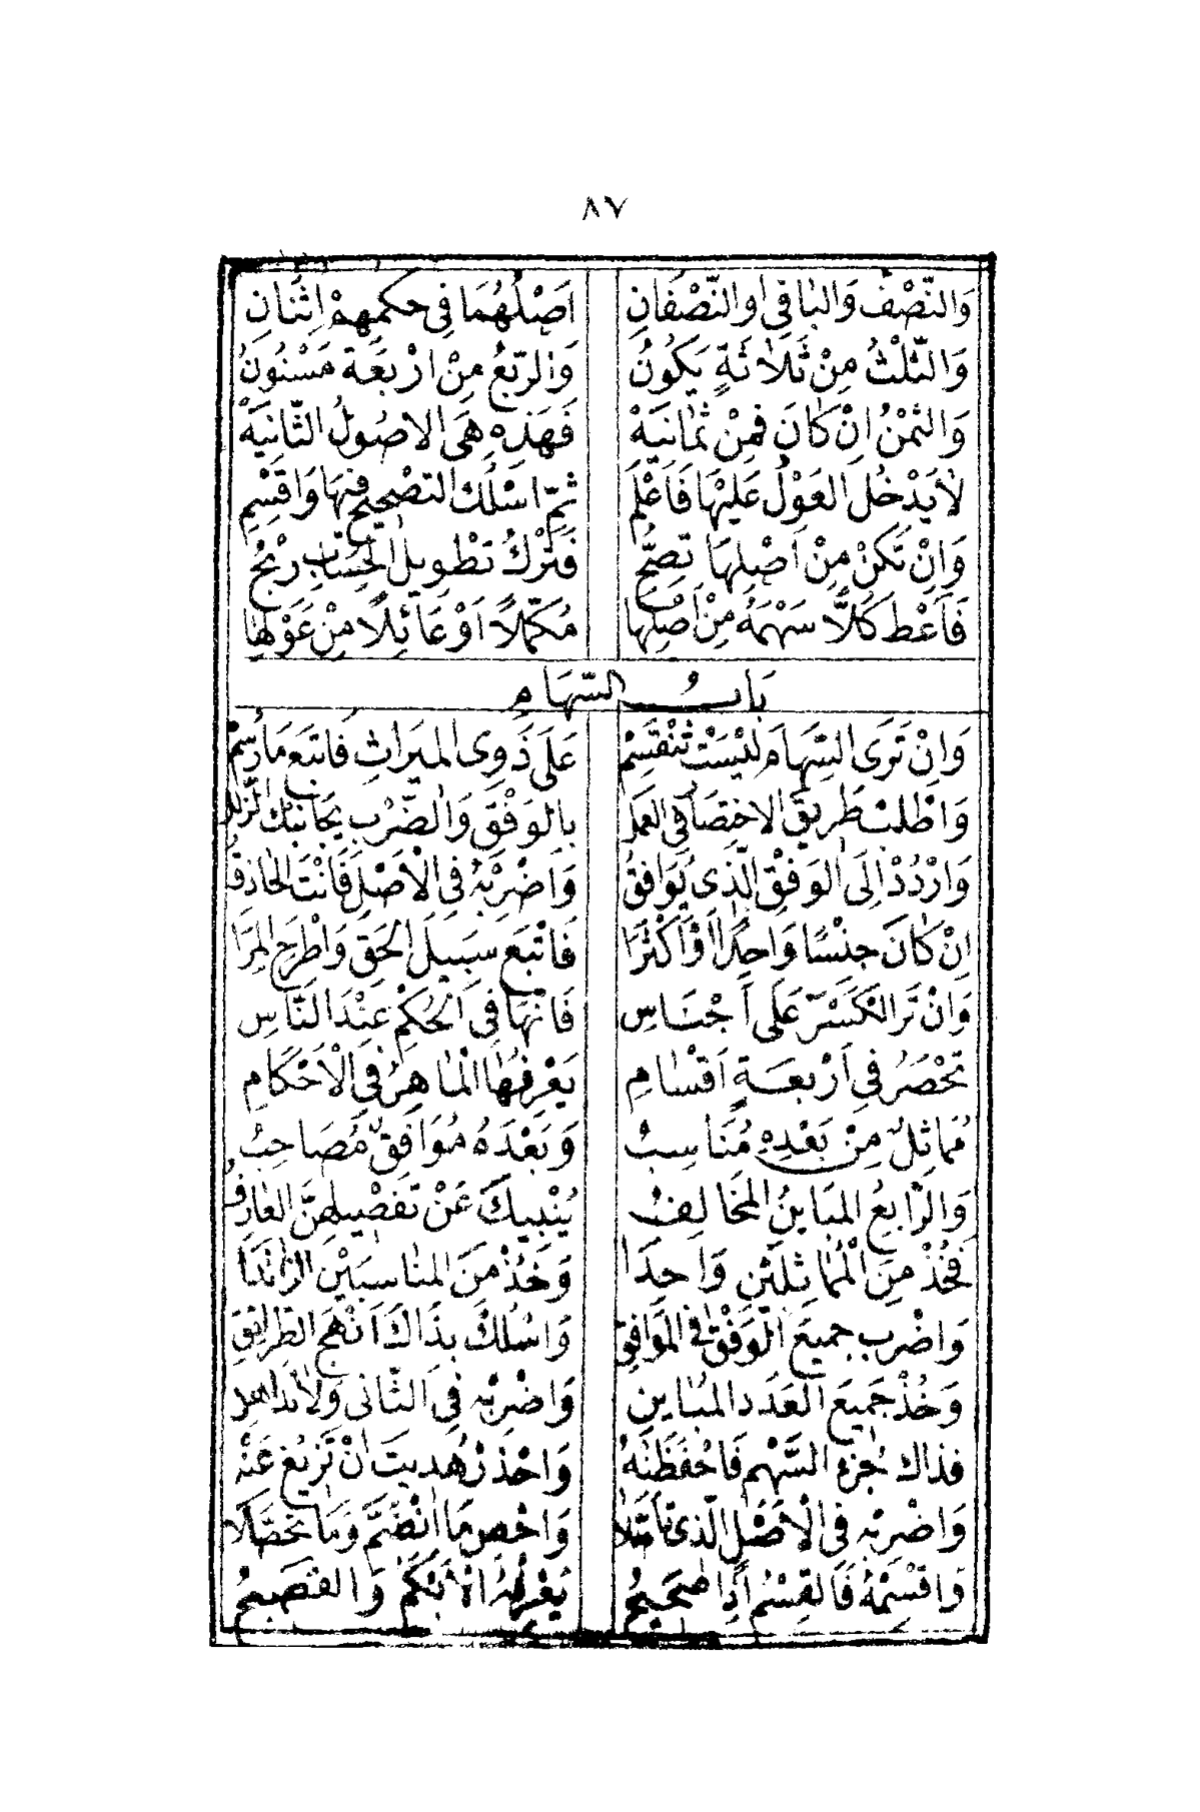 ٨٧
وَالنِّصْفُ وَالبَاقِي اَوِ النِّصْفَانِ اَصْلُهُمَا فِي حُكْمِهِمْ اِثْنَانِ
وَالثُّلْثُ مِنْ ثَلَاثَةٍ يَكُونُ وَالرُّبْعُ مِنْ اَرْبَعَةٍ مَسْنُونُ
وَالثُّمْنُ اِنْ كَانَ فَمِنْ ثَمَانِيَهْ فَهَذِهِ هِيَ الاُصُولُ الثَّانِيَهْ
لَا يَدْخُلُ العَوْلُ عَلَيْهَا فَاعْلَمِ ثُمَّ اسْلُكِ التَّصْحِيحَ فِيهَا وَاقْسِمِ
وَاِنْ تَكُنْ مِنْ اَصْلِهَا تَصِحُّ فَتَرْكُ تَطْوِيلِ الحِسَابِ رِبْحُ
فَاَعْطِ كُلًّا سَهْمَهُ مِنْ اَصْلِهَا مُكَمَّلًا اَوْ عَائِلًا مِنْ عَوْلِهَا
بَابُ السِّهَامِ
وَاِنْ تَرَى السِّهَامَ لَيْسَتْ تَنْقَسِمْ عَلَى ذَوِي المِيرَاثِ فَاتَّبِعْ مَا رُسِمْ
وَاطْلُبْ طَرِيقَ الاِخْتِصَارِ فِي العَمَلْ بِالوَفْقِ وَالضَّرْبِ يُجَانِبْكَ الزَّلَلْ
وَارْدُدْ اِلَى الوَفْقِ الَّذِي يُوَافِقُ وَاضْرِبْهُ فِي الْاَصْلِ فَاَنْتَ الحَاذِقُ
اِنْ كَانَ جِنْسًا وَاحِدًا اَوْ اَكْثَرَا فَاتْبَعْ سَبِيلَ الحَقِّ وَاطْرَحِ المِرَا
وَاِنْ تَرَ الكَسْرَ عَلَى اَجْنَاسِ فَاِنَّهَا فِي الْحُكْمِ عِنْدَ النَّاسِ
تُحْصَرُ فِي اَرْبَعَةٍ اَقْسَامِ يَعْرِفُهَا الْمَاهِرُ فِي الْاَحْكَامِ
مُمَاثِلٌ مِنْ بَعْدِهِ مُنَاسِبُ وَبَعْدَهُ مُوَافِقٌ مُصَاحِبُ
وَالرَّابِعُ المُبَايِنُ المُخَالِفُ يُنْبِيكَ عَنْ تَفْصِيلِهِنَّ العَارِفُ
فَخُذْ مِنَ الْمُمَاثِلَيْنِ وَاحِدَا وَخُذْ مِنَ المُنَاسِبَيْنِ الزَّائِدَا
وَاضْرِبْ جَمِيعَ الوَفْقِ فِي المُوَافِقِ وَاسْلُكْ بِذَاكَ اَنْهَجَ الطَّرَائِقِ
وَخُذْ جَمِيعَ العَدَدِ المُبَايِنِ وَاضْرِبْهُ فِي الثَّانِي وَلَا تُدَاهِنِ
فَذَاكَ جُزْءُ السَّهْمِ فَاحْفَظَنْهُ وَاحْذَرْ هُدِيتَ اَنْ تَزِيغَ عَنْهُ
وَاضْرِبْهُ فِي الْاَصْلِ الَّذِي تَاَصَّلَا وَاحْصِ مَا انْضَمَّ وَمَا تَحَصَّلَا
وَاقْسِمْهُ فَالقِسْمُ اِذًا صَحِيحُ يَعْرِفُهُ الْاَعْجَمُ وَالفَصِيحُ